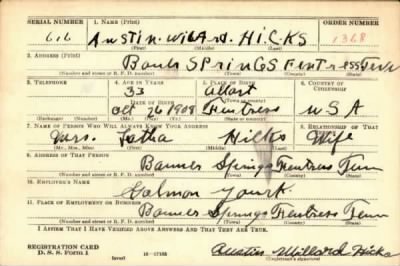 SERIAL NUMBER 1. NAME (Print) ORDER NUMBER
616 AUSTIN. WILARD. HICKS 1368
(First) (Middle) (Last)
2. ADDRESS (Print)
SPRINGS FENTRESS
(Number and street or R. F. D. number) (Town) (County) (State)
3. TELEPHONE 4. AGE IN YEARS 5. PLACE OF BIRTH 6. COUNTRY OF CITIZENSHIP
33 Allart
DATE OF BIRTH (Town or county)
Oct 26 1908 Fentress U S A
(Exchange) (Number) (Mo.) (Day) (Yr.) (State or country)
7. NAME OF PERSON WHO WILL ALWAYS KNOW YOUR ADDRESS 8. RELATIONSHIP OF THAT PERSON
Mrs. Hicks Wife
(Mr., Mrs., Miss) (First) (Middle) (Last)
9. ADDRESS OF THAT PERSON
Banner Springs Fentress Tenn
(Number and street or R. F. D. number) (Town) (County) (State)
10. EMPLOYER'S NAME
11. PLACE OF EMPLOYMENT OR BUSINESS
Banner Springs Fentress Tenn
(Number and street or R. F. D. number) (Town) (County) (State)
I AFFIRM THAT I HAVE VERIFIED ABOVE ANSWERS AND THAT THEY ARE TRUE.
REGISTRATION CARD
D. S. S. Form 1 (over) Austin Millard Hicks
(Registrant's signature)